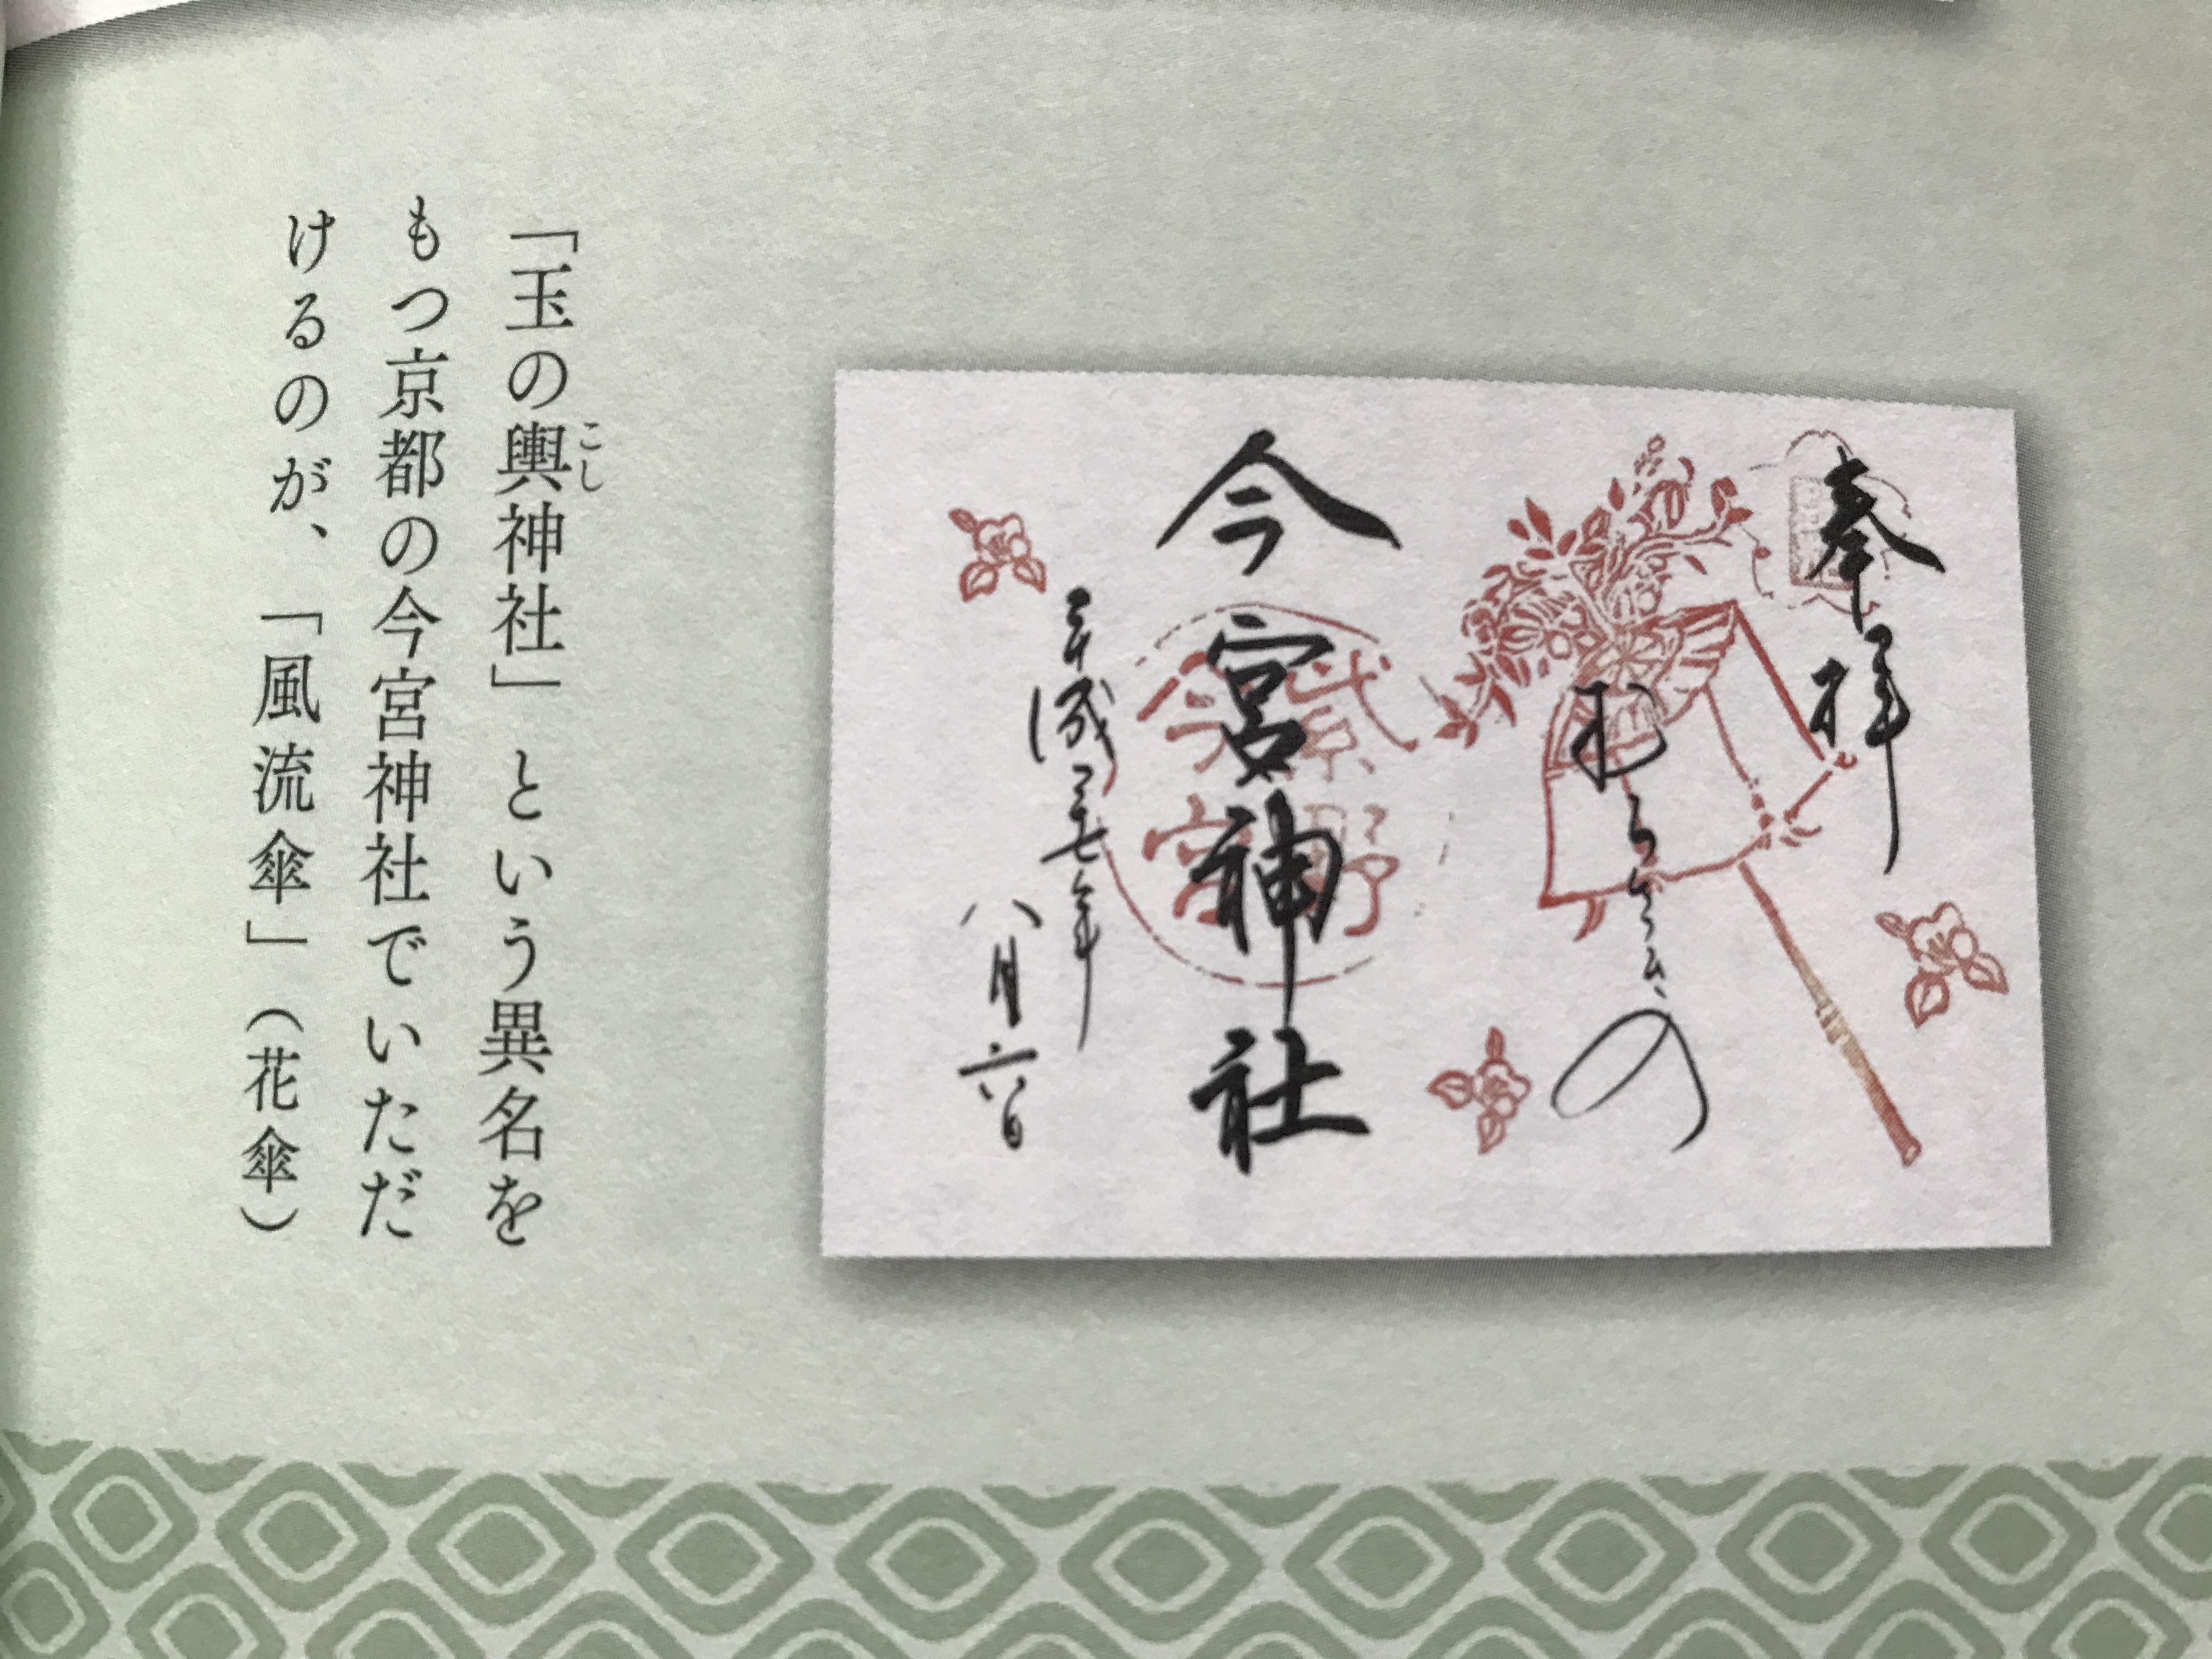 奉拝
むらさきの
今宮神社
紫野
今宮
平成二七年
八月六日
「玉の輿神社」という異名を
こし
もつ京都の今宮神社でいただ
けるのが、「風流傘」(花傘)